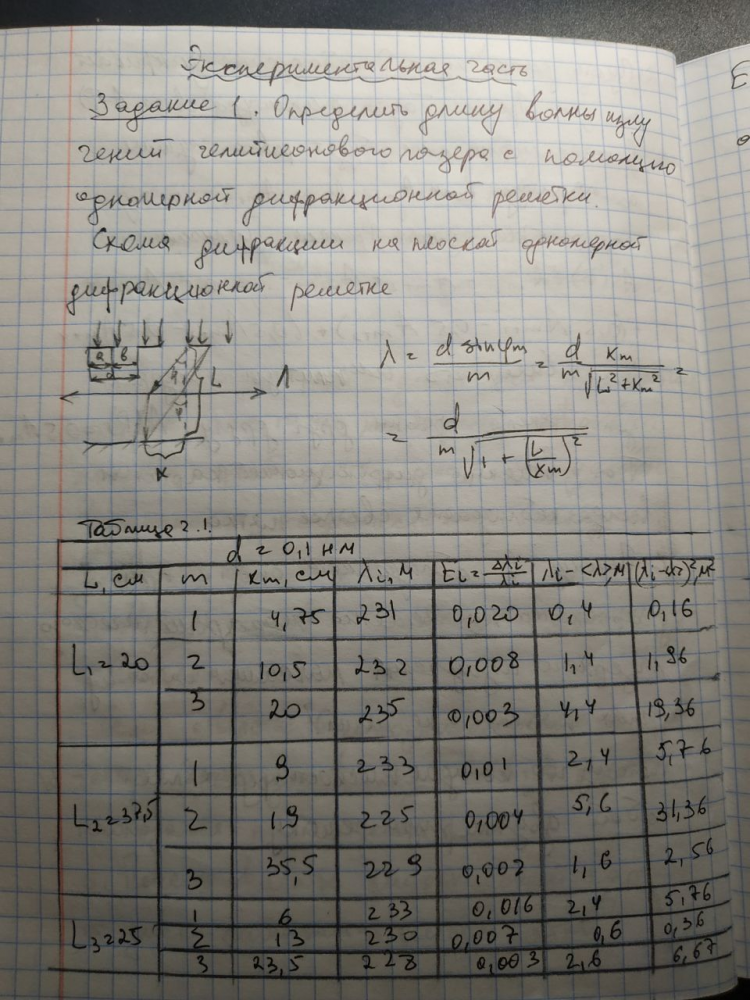 Экспериментальная часть
Задание 1. Определить длину волны излу
чений гелийнеонового лазера с помощью
одномерной дифракционной решетки.
Схема дифракции на плоской одномерной
дифракционной решетке
a b
d
φ
L
Л
φ
x
λ = d sinφm / m = d/m xm/√(L²+xm²) =
= d / m√(1 + (L/xm)²)
Таблица 2.1.
d = 0,1 нм
L, см m xm, см λi, м Ei = Δλi/λi λi - <λ>, м (λi-<λ>)², м²
L1 = 20
1 4,75 231 0,020 0,4 0,16
2 10,5 232 0,008 1,4 1,96
3 20 235 0,003 4,4 19,36
L2 = 37,5
1 9 233 0,01 2,4 5,76
2 19 225 0,004 5,6 31,36
3 35,5 229 0,002 1,6 2,56
L3 = 25
1 6 233 0,016 2,4 5,76
2 13 230 0,007 0,6 0,36
3 23,5 228 0,003 2,6 6,67